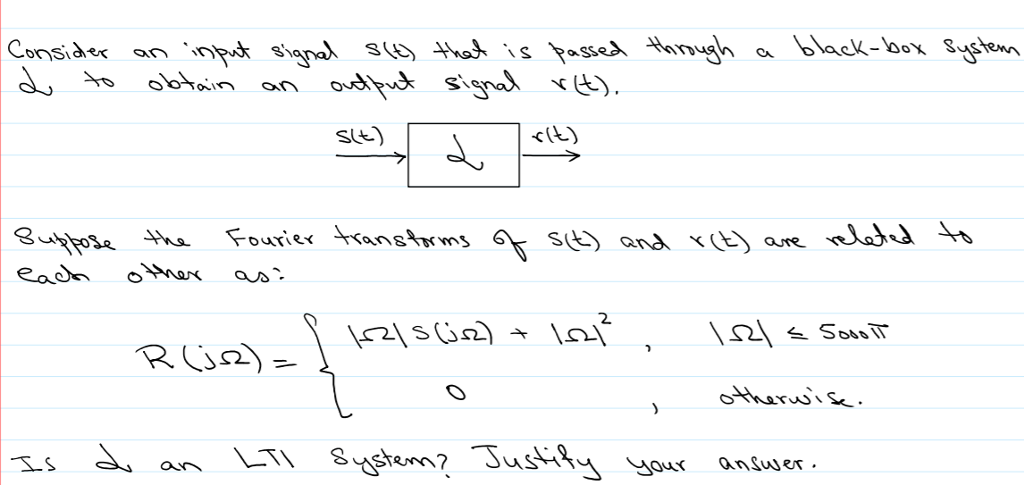 Consider an input signal s(t) that is passed through a black-box system
L to obtain an output signal r(t).
s(t) L r(t)
Suppose the Fourier transforms of s(t) and r(t) are related to
each other as:
R(jΩ) = { |Ω|S(jΩ) + |Ω|², |Ω| ≤ 5000π
0, otherwise.
Is L an LTI system? Justify your answer.